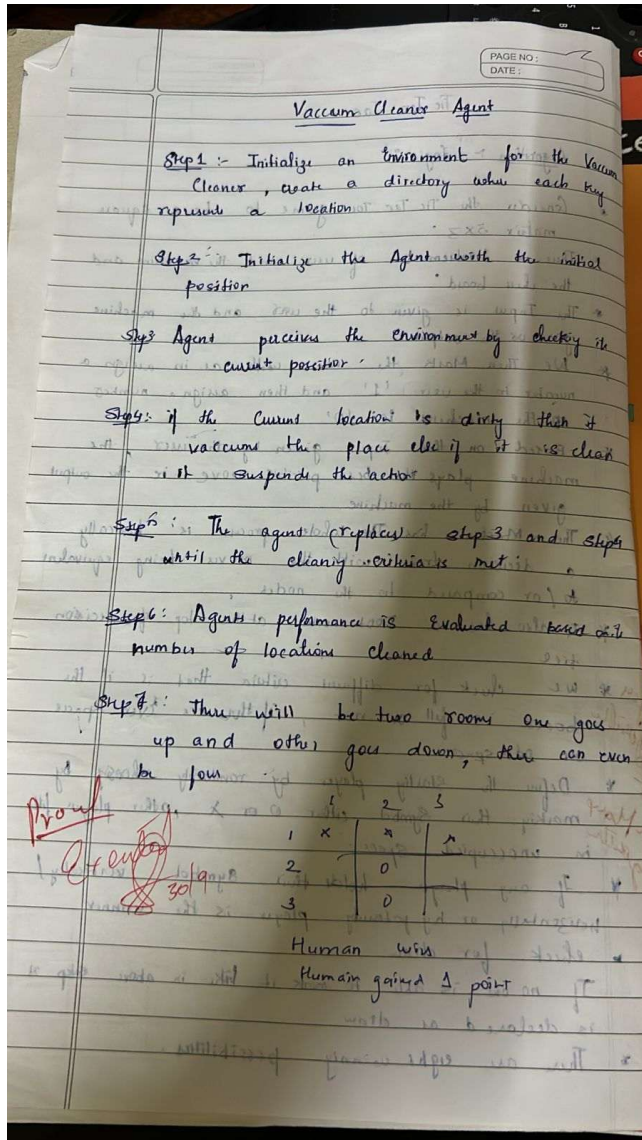 PAGE NO:
DATE:
Vaccum Cleaner Agent
Step 1 :- Initialize an Environment for the Vaccum
Cleaner, create a directory where each key
represents a location
Step 2 :- Initialize the Agent with the initial
position
Step 3 Agent perceives the Environment by checking its
current position.
Step 4: if the Current location is dirty then it
vaccums the place else if it is clean
it suspends the action
Step 5: The agent (replaces) step 3 and step 4
until the cleaning criteria is met.
Step 6: Agents performance is Evaluated based on
number of locations cleaned
Step 7: There will be two rooms one goes
up and other goes down, there can even
be four.
1 2 3
1 x x x
2 0
3 0
30/9
Human wins
Human gained 1 point